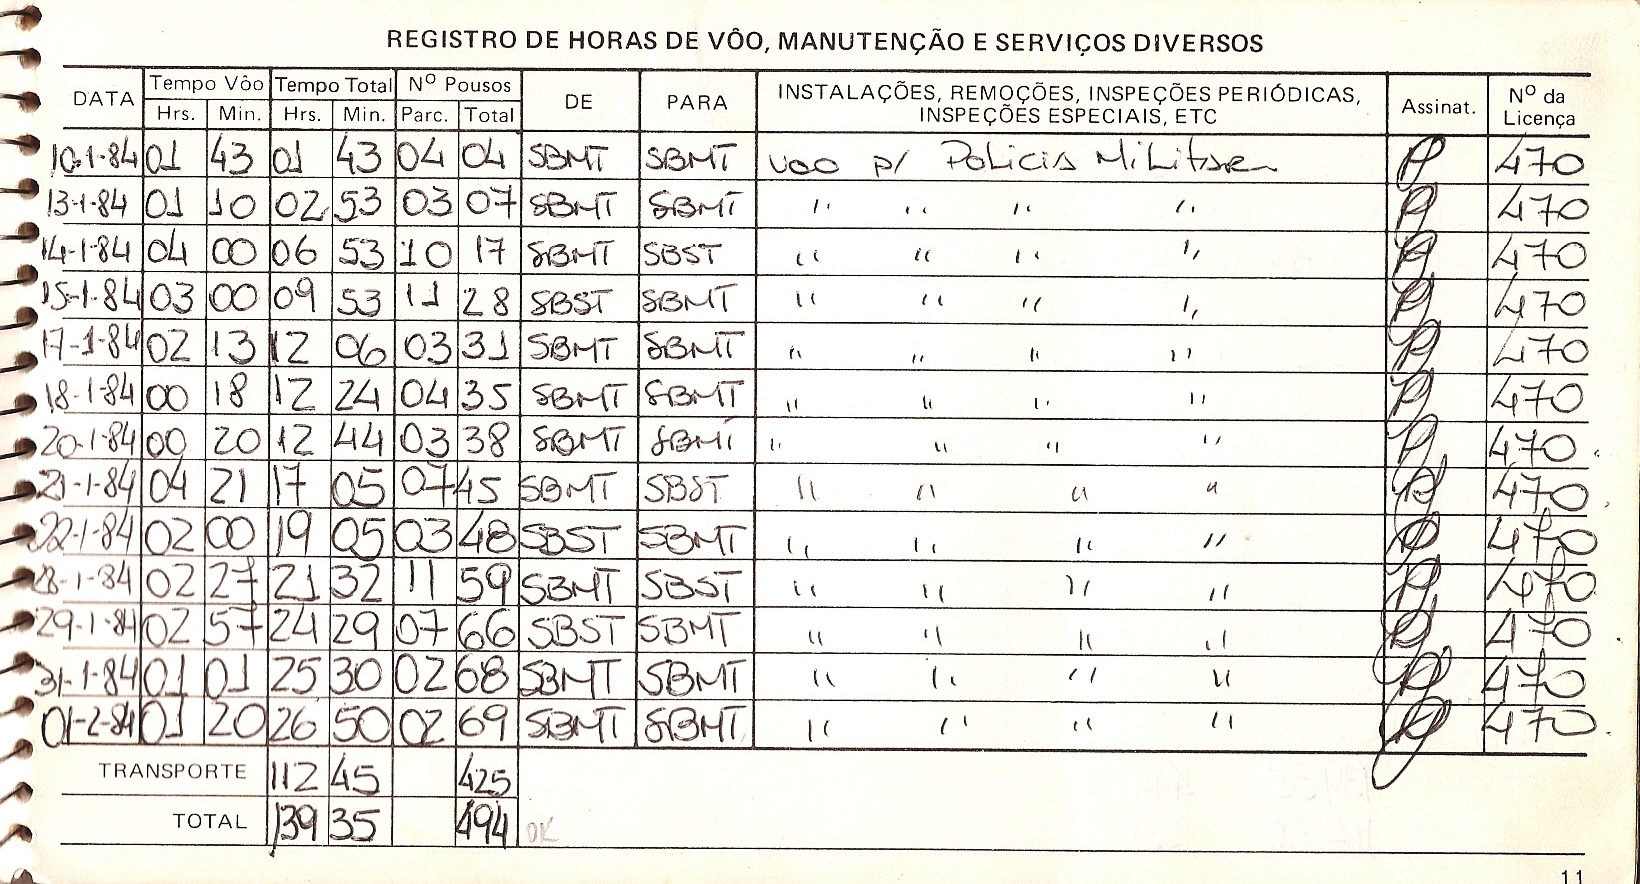 REGISTRO DE HORAS DE VÔO, MANUTENÇÃO E SERVIÇOS DIVERSOS
DATA Tempo Vôo Tempo Total Nº Pousos DE PARA INSTALAÇÕES, REMOÇÕES, INSPEÇÕES PERIÓDICAS, INSPEÇÕES ESPECIAIS, ETC Assinat. Nº da Licença
Hrs. Min. Hrs. Min. Parc. Total
10-1-84 01 43 01 43 04 04 SBMT SBMT voo p/ Policia Militar 470
13-1-84 01 10 02 53 03 07 SBMT SBMT " " " " 470
14-1-84 04 00 06 53 10 17 SBMT SBST " " " " 470
15-1-84 03 00 09 53 11 28 SBST SBMT " " " " 470
17-1-84 02 13 12 06 03 31 SBMT SBMT " " " " 470
18-1-84 00 18 12 24 04 35 SBMT SBMT " " " " 470
20-1-84 00 20 12 44 03 38 SBMT SBMT " " " " 470
21-1-84 04 21 17 05 07 45 SBMT SBST " " " " 470
22-1-84 02 00 19 05 03 48 SBST SBMT " " " " 470
28-1-84 02 27 21 32 11 59 SBMT SBST " " " " 470
29-1-84 02 57 24 29 07 66 SBST SBMT " " " " 470
31-1-84 01 01 25 30 02 68 SBMT SBMT " " " " 470
01-2-84 01 20 26 50 02 69 SBMT SBMT " " " " 470
TRANSPORTE 112 45 425
TOTAL 139 35 494 OK
11